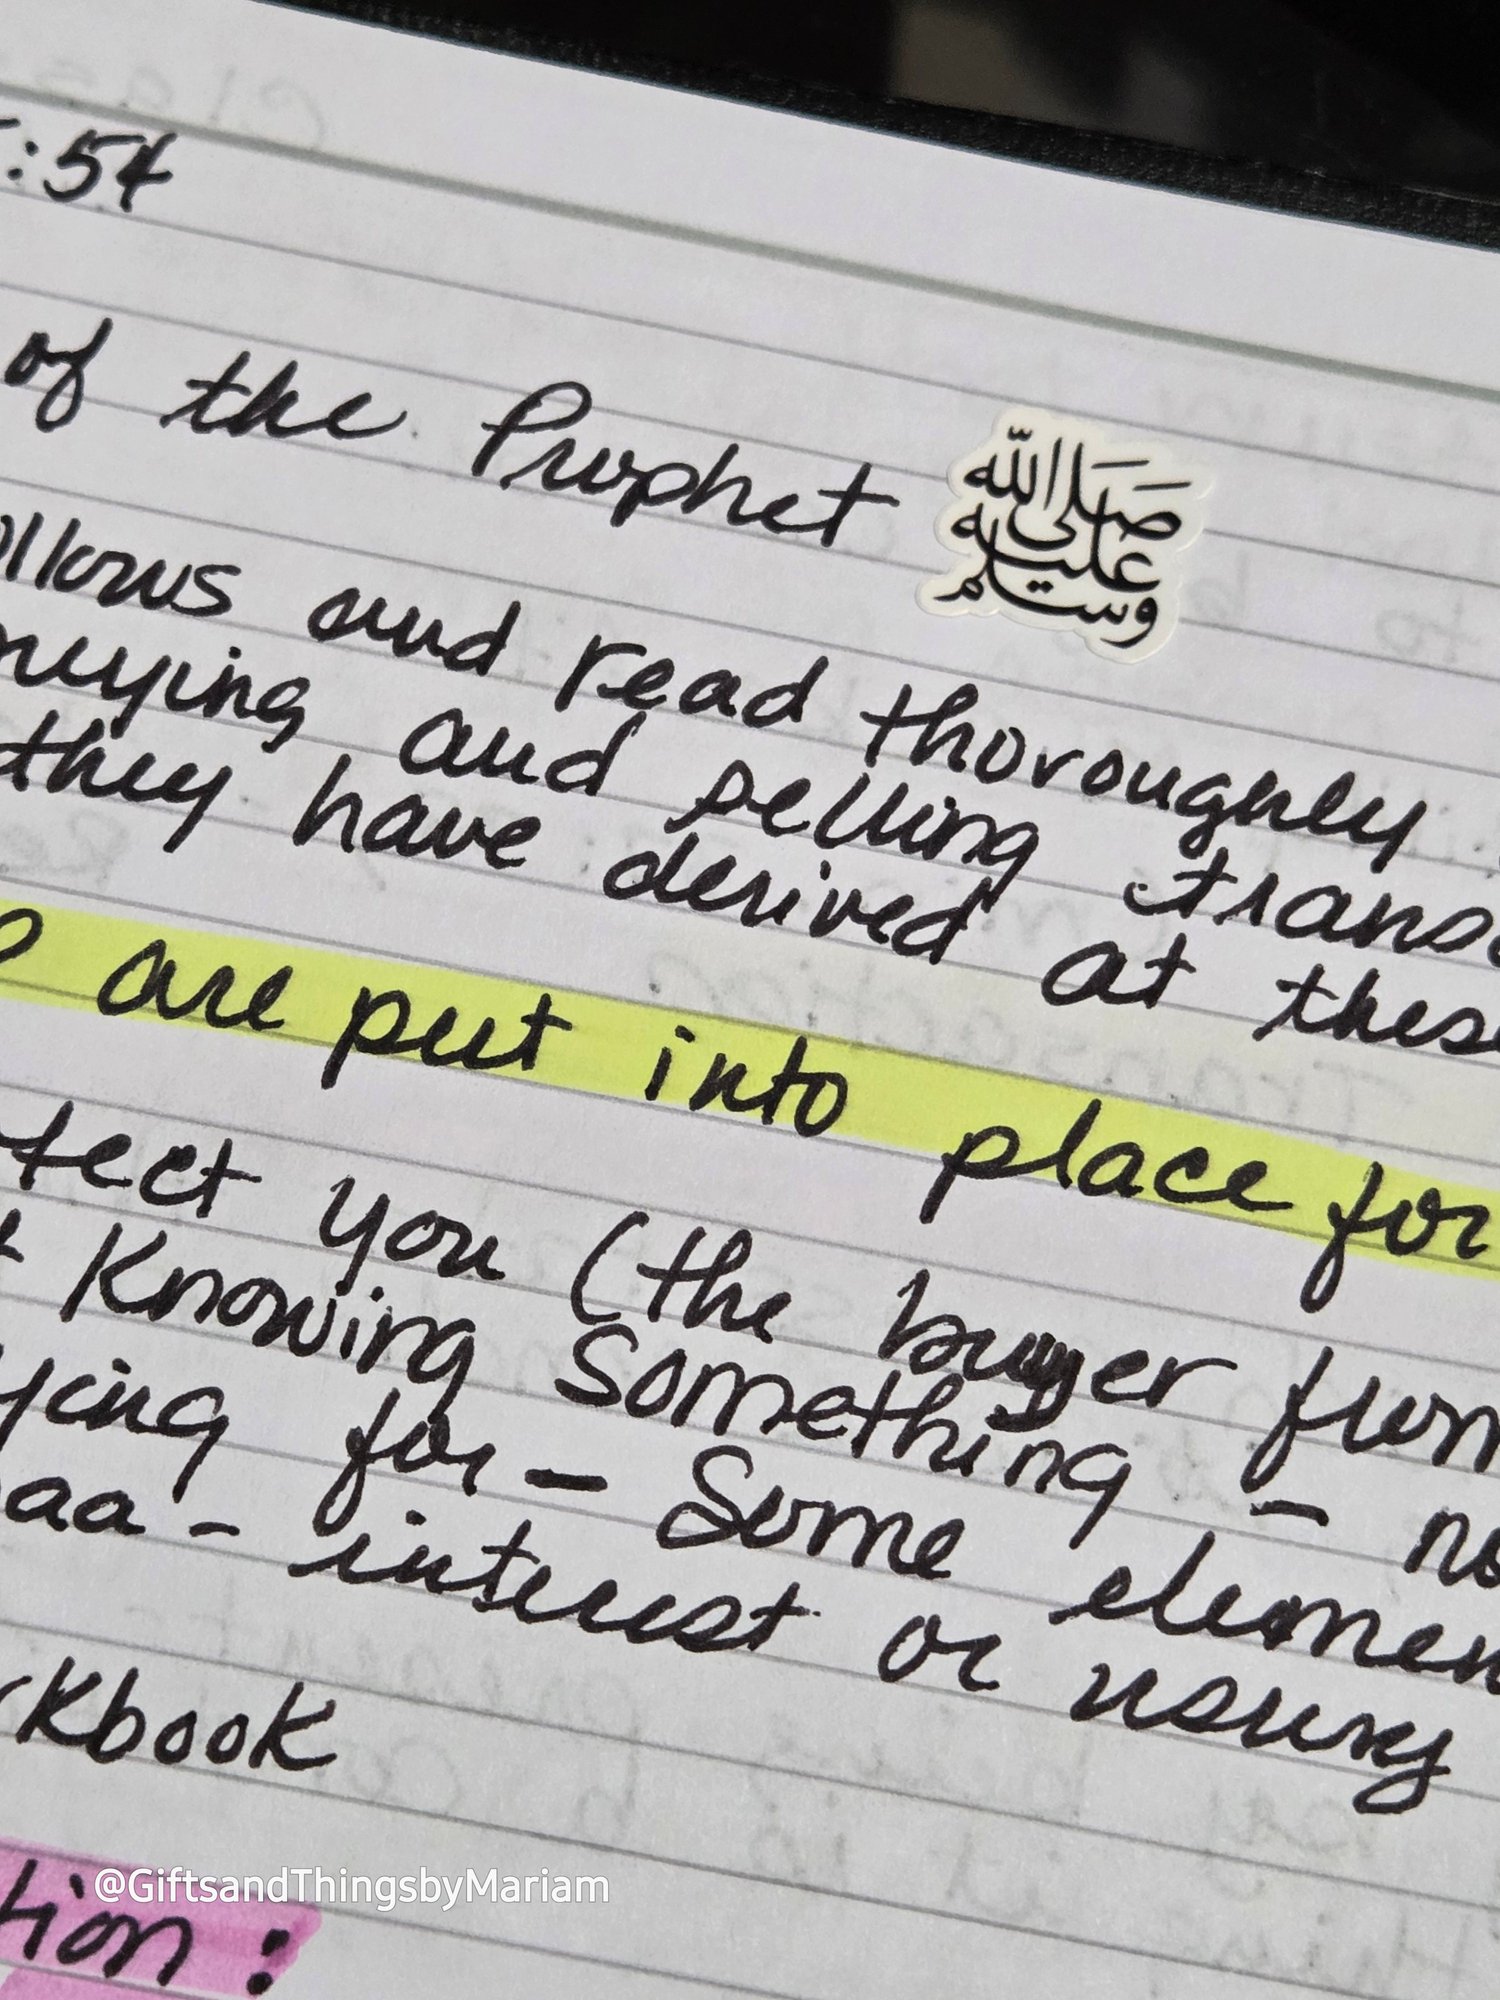 :54
of the Prophet صلى الله عليه وسلم
ollows and read thoroughly
buying and selling trans
they have derived at thes
are put into place for
tect you (the buyer from
Knowing something - no
ying for - Some elemen
baa - interest or usury
rkbook
tion:
@GiftsandThingsbyMariam